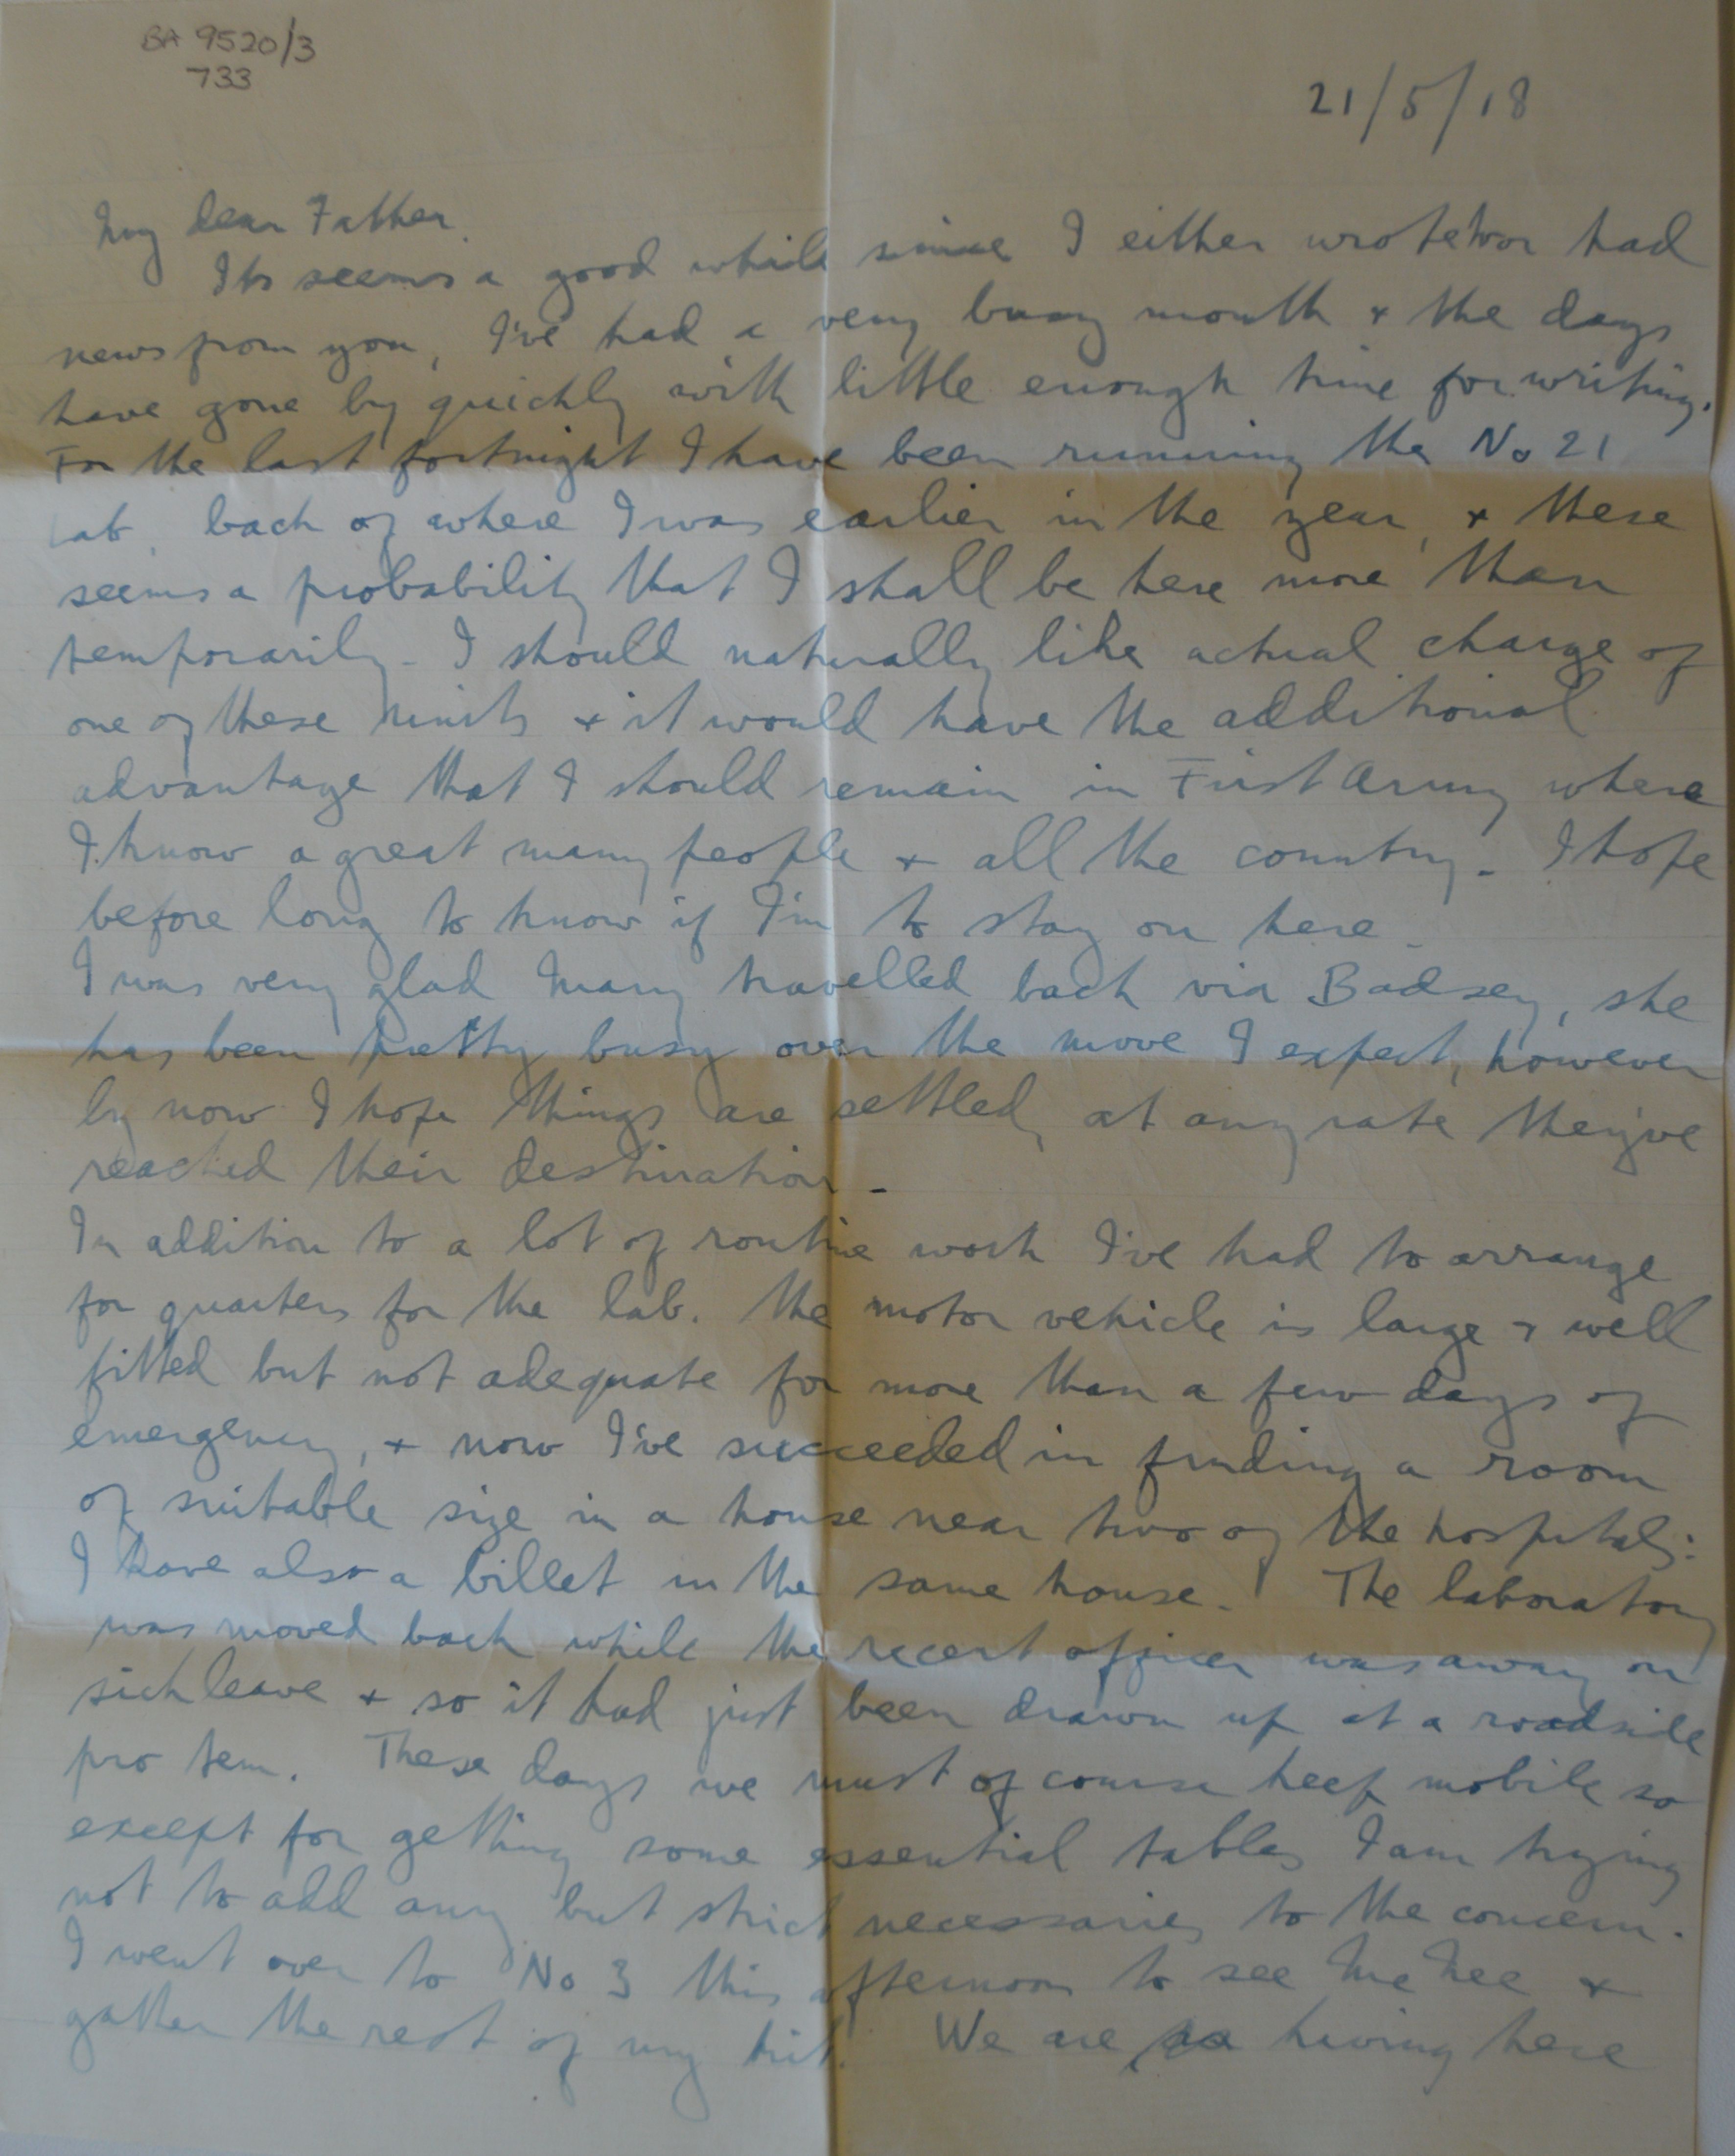 BA 9520/3
733
21/5/18
My dear Father.
Its seems a good while since I either wrote or had
news from you, I've had a very busy month + the days
have gone by quickly with little enough time for writing.
For the last fortnight I have been running the No 21
Lab, back of where I was earlier in the year, + there
seems a probability that I shall be here more than
temporarily - I should naturally like actual charge of
one of these units + it would have the additional
advantage that I should remain in First Army where
I know a great many people + all the country - I hope
before long to know if I'm to stay on here -
I was very glad Mary travelled back via Badsey, she
has been pretty busy over the move I expect, however
by now I hope things are settled, at any rate they've
reached their destination -
In addition to a lot of routine work I've had to arrange
for quarters for the lab. The motor vehicle is large + well
fitted but not adequate for more than a few days of
emergency, + now I've succeeded in finding a room
of suitable size in a house near two of the hospitals:
I have also a billet in the same house. The laboratory
was moved back while the recent officer was away on
sick leave + so it had just been drawn up at a roadside
pro tem. These days we must of course keep mobile so
except for getting some essential tables I am trying
not to add any but strict necessaries to the concern.
I went over to No 3 this afternoon to see McNee +
gather the rest of my kit. We are having here